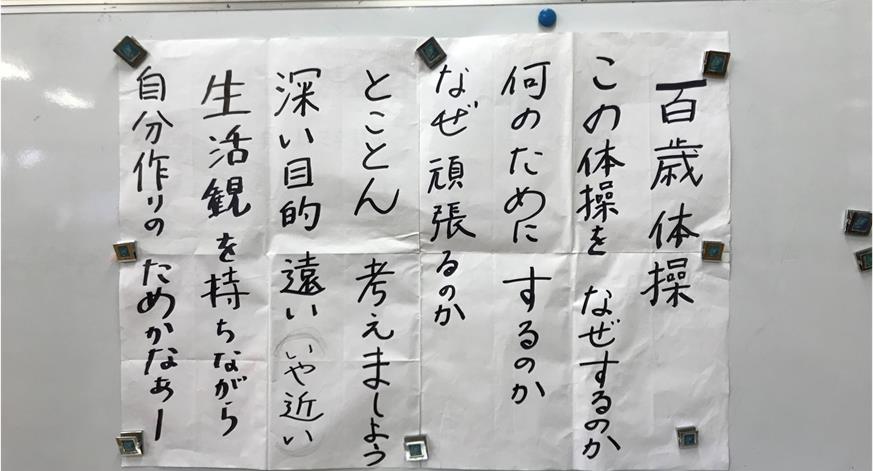 百歳体操
この体操を なぜするのか
何のために するのか
なぜ 頑張るのか
とことん 考えましよう
深い目的 遠い いや近い
生活観を持ちながら
自分作りの ためかなぁー